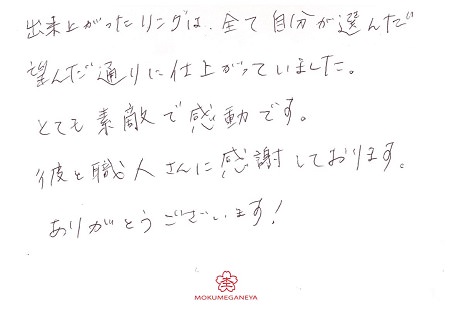 出来上がったリングは、全て自分が選んだ
望んだ通りに仕上がっていました。
とても素敵で感動です。
彼と職人さんに感謝しております。
ありがとうございます!
MOKUMEGANEYA